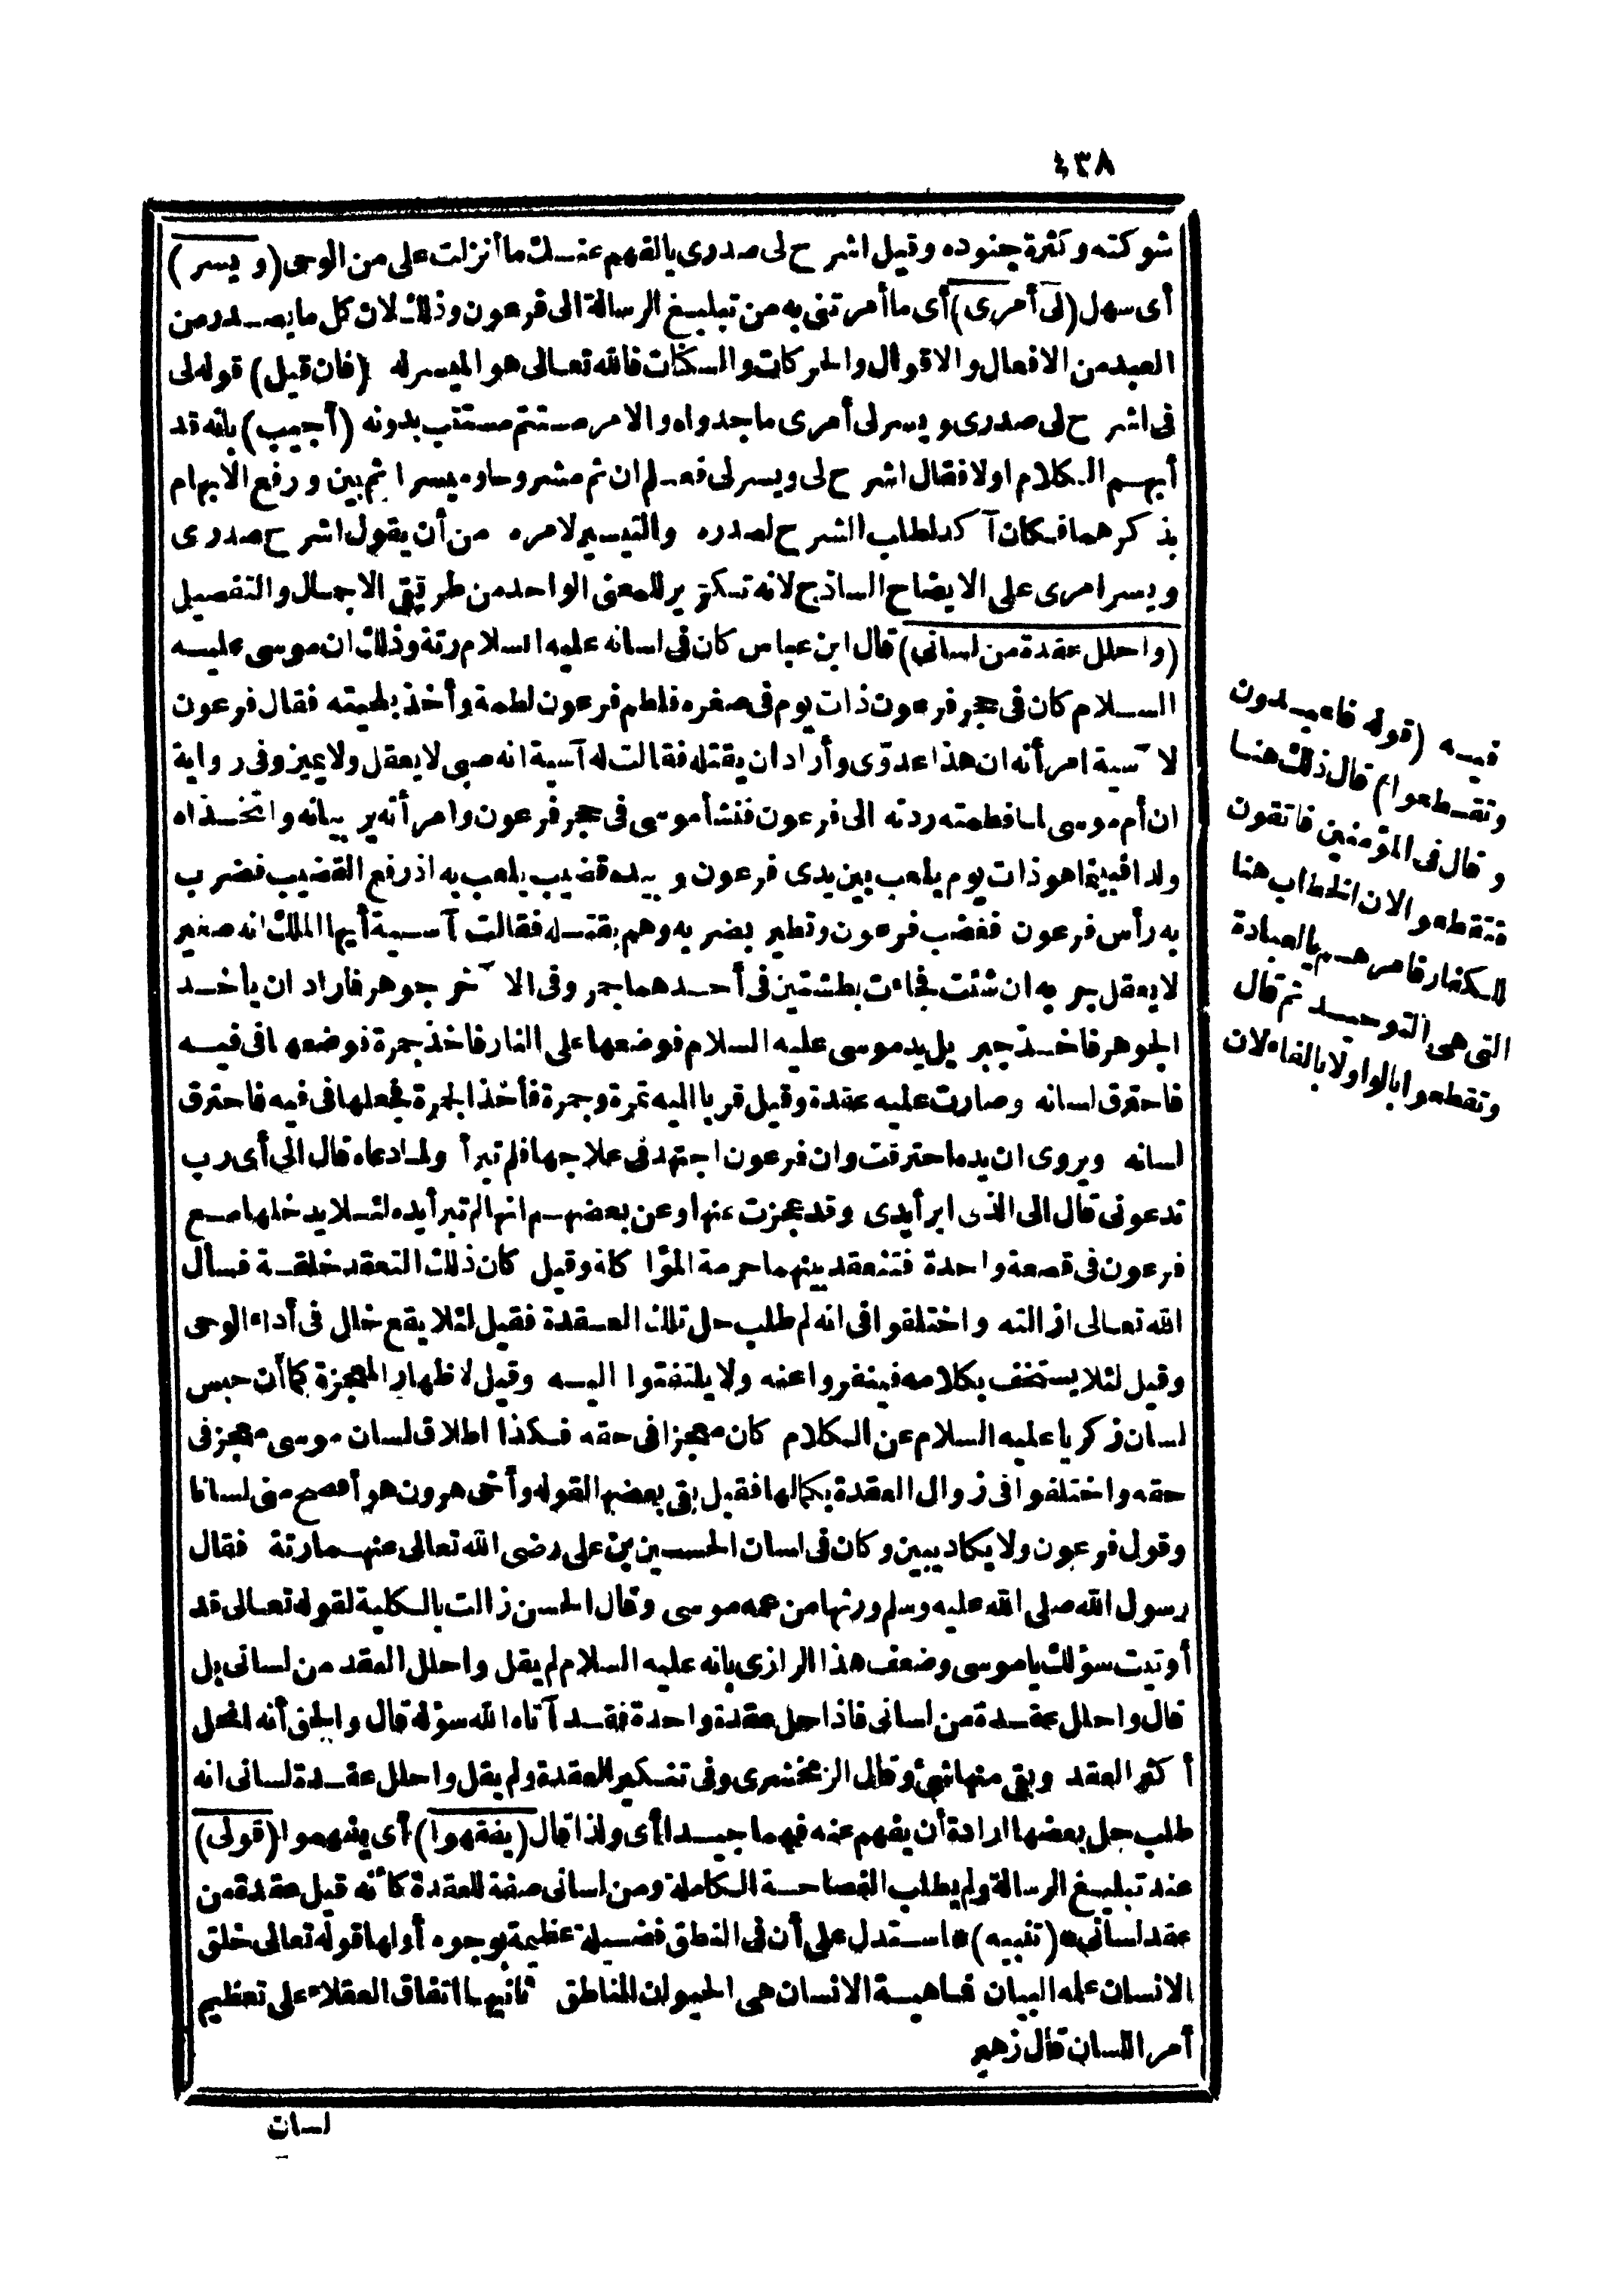 ٤٣٨
شوكته وكثرة جنوده وقيل اشرح لى صدرى بالفهم عنك ما أنزلت على من الوحى (ويسر)
أى سهل (لى أمرى) أى ما أمرتنى به من تبليغ الرسالة الى فرعون وذلك لان كل ما يصدر من
العبد من الافعال والاقوال والحركات والسكنات فالله تعالى هو الميسر له (فان قيل) قوله لى
فى اشرح لى صدرى ويسر لى أمرى ما جدواه والامر مستتم مستتب بدونه (أجيب) بانه قد
أبهم الكلام اولا فقال اشرح لى ويسر لى فعلم ان ثم مشروحا وميسرا ثم بين ورفع الابهام
بذكرهما فكان آكد لطلب الشرح لصدره والتيسير لامره من أن يقول اشرح صدرى
ويسر امرى على الايضاح الساذج لانه تكرير للمعنى الواحد من طريقى الاجمال والتفصيل
(واحلل عقدة من لسانى) قال ابن عباس كان فى لسانه عليه السلام رتة وذلك ان موسى عليه
السلام كان فى حجر فرعون ذات يوم فى صغره فلطم فرعون لطمة وأخذ بلحيته فقال فرعون
لآسية امرأته ان هذا عدوّى وأراد ان يقتله فقالت له آسية انه صبى لا يعقل ولا يميز وفى رواية
ان أم موسى لما فطمته ردته الى فرعون فنشأ موسى فى حجر فرعون وامرأته يربيانه واتخذاه
ولدا فبينما هو ذات يوم يلعب بين يدى فرعون وبيده قضيب يلعب به اذ رفع القضيب فضرب
به رأس فرعون فغضب فرعون وتطير بضربه وهم بقتله فقالت آسية أيها الملك انه صغير
لا يعقل جربه ان شئت فجاءت بطشتين فى أحدهما جمر وفى الآخر جوهر فاراد ان يأخذ
الجوهر فاخذ جبريل يد موسى عليه السلام فوضعها على النار فاخذ جمرة فوضعها فى فيه
فاحترق لسانه وصارت عليه عقدة وقيل قربا اليه تمرة وجمرة فأخذ الجمرة فجعلها فى فيه فاحترق
لسانه ويروى ان يده احترقت وان فرعون اجتهد فى علاجها فلم تبرأ ولما دعاه قال الى أى رب
تدعونى قال الى الذى ابرأ يدى وقد عجزت عنها وعن بعضهم انها لم تبرأ يده لئلا يدخلها مع
فرعون فى قصعة واحدة فتنعقد بينهما حرمة المؤاكلة وقيل كان ذلك التعقد خلقة فسأل
الله تعالى ازالته واختلفوا فى انه لم طلب حل تلك العقدة فقيل لئلا يقع خلل فى أداء الوحى
وقيل لئلا يستخف بكلامه فينفروا عنه ولا يلتفتوا اليه وقيل لاظهار المعجزة كما أن حبس
لسان زكريا عليه السلام عن الكلام كان معجزا فى حقه فكذا اطلاق لسان موسى معجز فى
حقه واختلفوا فى زوال العقدة بكمالها فقيل بقى بعضها لقوله وأخى هرون هو أفصح منى لسانا
وقول فرعون ولا يكاد يبين وكان فى لسان الحسين بن على رضى الله تعالى عنهما رتة فقال
رسول الله صلى الله عليه وسلم ورثها من عمه موسى وقال الحسن زالت بالكلية لقوله تعالى قد
أوتيت سؤلك يا موسى وضعف هذا الرازى بانه عليه السلام لم يقل واحلل العقد من لسانى بل
قال واحلل عقدة من لسانى فاذا حل عقدة واحدة فقد آتاه الله سؤله قال والحق أنه انحل
أكثر العقد وبقى منها شئ وقال الزمخشرى وفى تنكير العقدة ولم يقل واحلل عقدة لسانى انه
طلب حل بعضها ارادة أن يفهم عنه فهما جيدا أى ولذا قال (يفقهوا) أى يفهموا (قولى)
عند تبليغ الرسالة ولم يطلب الفصاحة الكاملة ومن لسانى صفة للعقدة كأنه قيل عقدة من
عقد لسانى * (تنبيه) * استدل على أن فى النطق فضيلة عظيمة بوجوه أولها قوله تعالى خلق
الانسان علمه البيان فماهية الانسان هى الحيوان الناطق ثانيها اتفاق العقلاء على تعظيم
أمر اللسان قال زهير
لسان
فيه (قوله فاعبدون
وتقطعوا) قال ذلك هنا
وقال فى المؤمنين فاتقون
فتقطعوا لان الخطاب هنا
للكفار فامرهم بالعبادة
التى هى التوحيد ثم قال
وتقطعوا بالواو لا بالفاء لان